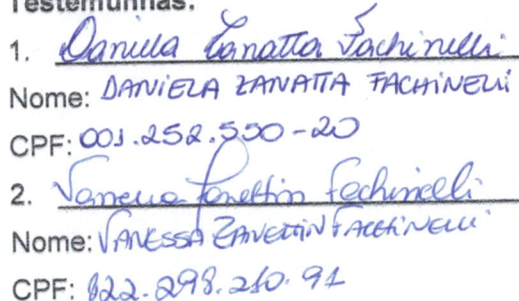 Testemunhas:
1. Daniela Zanatta Fachinelli
Nome: DANIELA ZANATTA FACHINELLI
CPF: 001.252.550-20
2. Vanessa Zanettin Fachinelli
Nome: VANESSA ZANETTIN FACHINELLI
CPF: 822.298.210.91